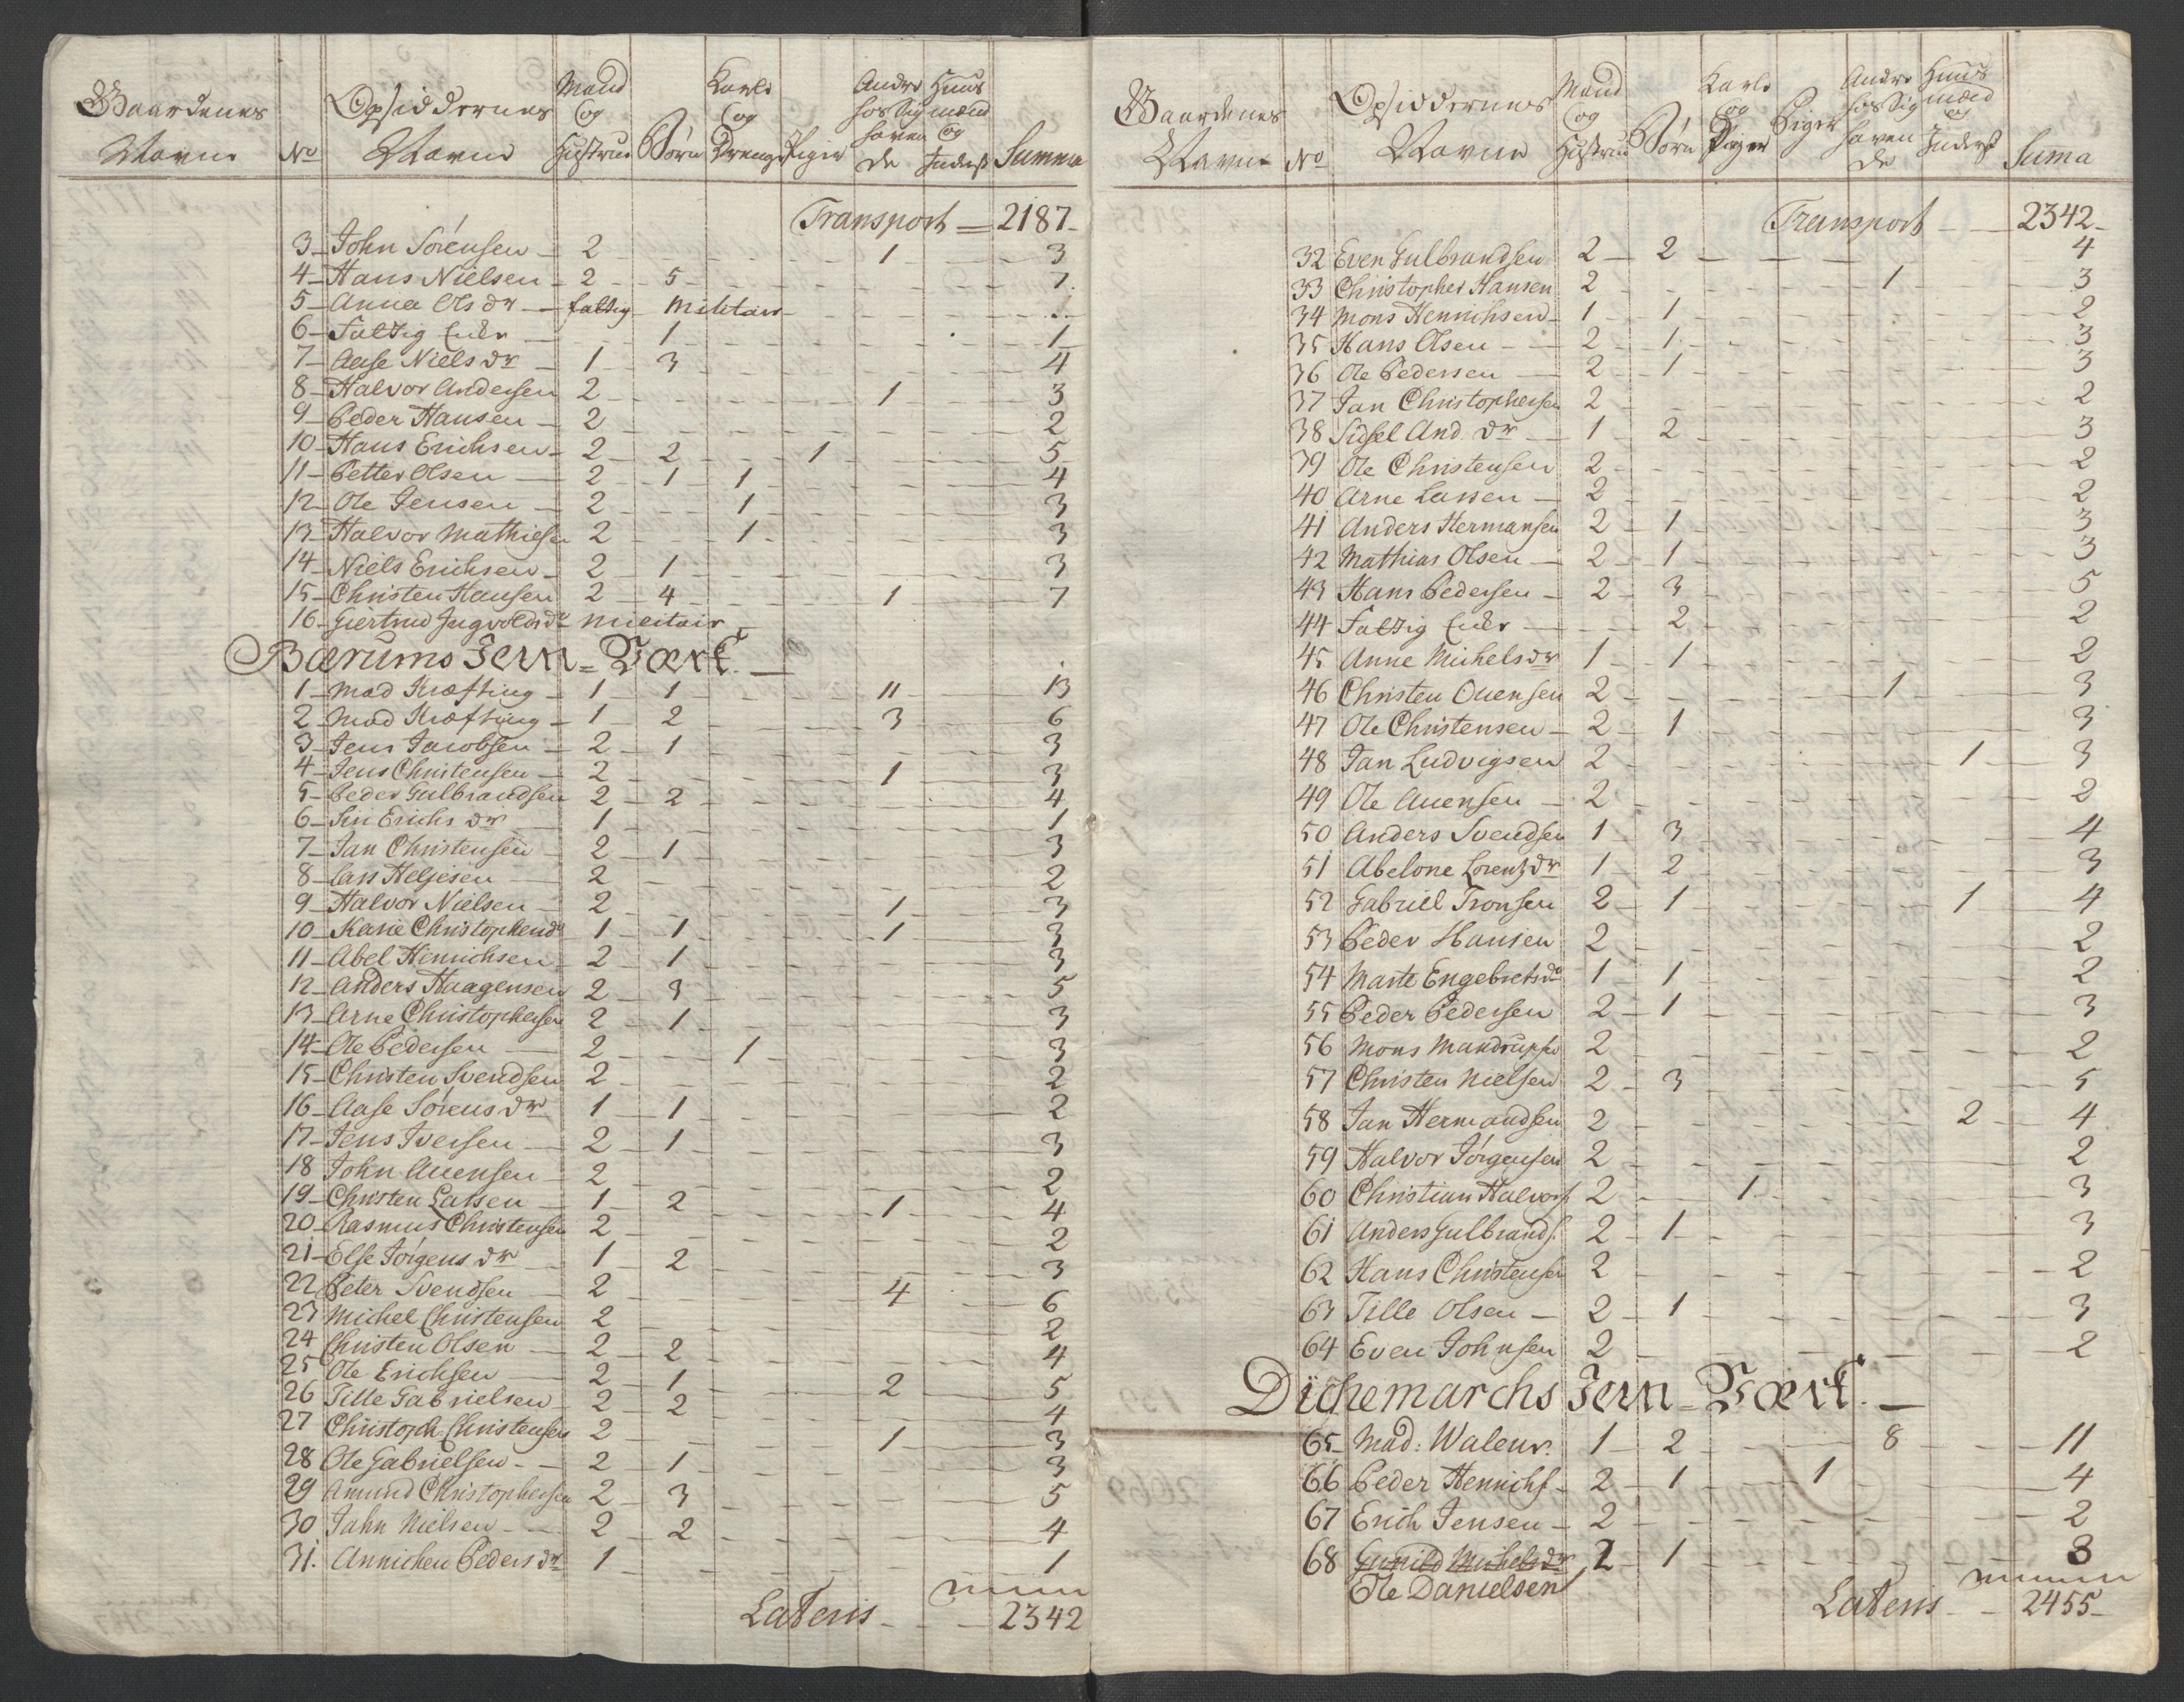 Gaardenes Navne | No | Opsiddernes Navne | Mand og Hustrue | Børn | Karle og Drenge | Piger | Andre hos sig havende | Huusmænd og Inderst | Summa
Transport = 2187
3 John Sörensen 2 1 3
4 Hans Nielsen 2 5 7
5 Anna Ols dr fattig Militair
6 Fattig 1 1
7 Aase Niels dr 1 3 4
8 Halvor Andersen 2 1 3
9 Peder Hansen 2 2
10 Hans Erichsen 2 2 1 5
11 Petter Olsen 2 1 1 4
12 Ole Jensen 2 1 3
13 Halvor Mathiesen 2 1 3
14 Niels Erichsen 2 1 3
15 Christen Hansen 2 4 1 7
16 Giertrud Ingvolds dr Militair
Bærums Jern-Værk.
1 Mad Kræfting 1 1 11 13
2 Mad Kræfting 1 2 3 6
3 Jens Jacobsen 2 1 3
4 Jens Christensen 2 1 3
5 Peder Gulbrandsen 2 2 4
6 Siri Erichs dr 1 1
7 Jan Christensen 2 1 3
8 Lars Helgesen 2 2
9 Halvor Nielsen 2 1 3
10 Karie Christophersd 1 1 1 3
11 Abel Henrichsen 2 1 3
12 Anders Haagensen 2 3 5
13 Arne Christophersen 2 1 3
14 Ole Pedersen 2 1 3
15 Christen Svendsen 2 2
16 Aase Sörens dr 1 1 2
17 Jens Iversen 2 1 3
18 John Auensen 2 2
19 Christen Larsen 1 2 1 4
20 Rasmus Christensen 2 2
21 Else Jörgens dr 1 2 3
22 Peter Svendsen 2 4 6
23 Michel Christensen 2 2
24 Christen Olsen 2 2 4
25 Ole Erichsen 2 1 2 5
26 Tille Gabrielsen 2 2 4
27 Christoph Christensen 2 1 3
28 Ole Gabrielsen 2 1 3
29 Amund Christophersen 2 3 5
30 Jahn Nielsen 2 2 4
31. Annichen Peders dr 1 1
Lateris 2342
Gaardenes Navne | No | Opsiddernes Navne | Mand og Hustrue | Børn | Karle og Piger | Piger | Andre hos sig havende | Huusmænd og Inderst | Suma
Transport 2342
32 Even Gulbrandsen 2 2 4
33 Christopher Hansen 2 1 3
34 Mons Henrichsen 1 1 2
35 Hans Olsen 2 1 3
36 Ole Pedersen 2 1 3
37 Jan Christophersen 2 2
38 Sidsel And. dr 1 2 3
39 Ole Christensen 2 2
40 Arne Larsen 2 2
41 Anders Hermansen 2 1 3
42 Mathias Olsen 2 1 3
43 Hans Pedersen 2 3 5
44 Fattig 2 2
45 Anne Michels dr 1 1 2
46 Christen Ouensen 2 1 3
47 Ole Christensen 2 1 3
48 Jan Ludvigsen 2 1 3
49 Ole Auensen 2 2
50 Anders Svendsen 1 3 4
51 Abelone Lorentz dr 1 2 3
52 Gabriel Tronsen 2 1 1 4
53 Peder Hansen 2 2
54 Marte Engebretsd 1 1 2
55 Peder Pedersen 2 1 3
56 Mons Mandrupse 2 2
57 Christen Nielsen 2 3 5
58 Jan Hermandsen 2 2 4
59 Halvor Jörgensen 2 2
60 Christian Halvors 2 1 3
61 Anders Gulbrands. 2 1 3
62 Hans Christensen 2 2
63 Tille Olsen 2 1 3
64 Even Johnsen 2 2
Dichemarchs Jern-Værk.
65 Mad: Waleur. 1 2 8 11
66 Peder Henrichs 2 1 1 4
67 Erich Jensen 2 2
68 Gunild Michels dr 2 1 3
Ole Danielsen
Lateris 2455